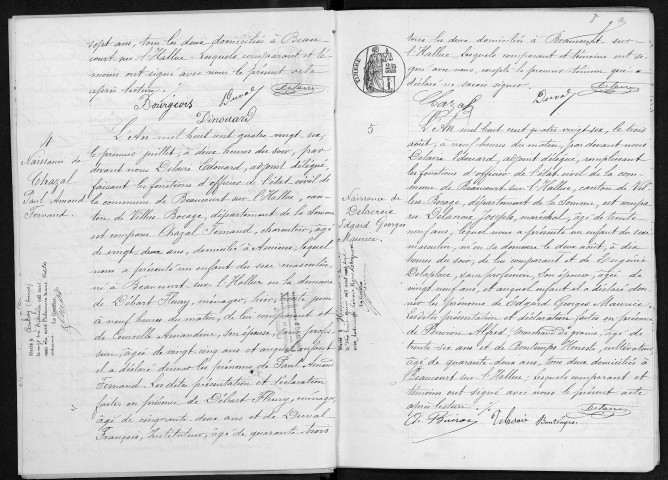 sept ans, tous les deux domiciliés à Beau
court sur l'Hallue, lesquels comparant et té
moins ont signé avec nous le présent acte
après lecture.
Bourgeois Duval Delaire
Pinouard
4
Naissance de
Chazal
Paul Amand
Fernand.
L'An mil huit cent quatre vingt six,
le premier juillet, à deux heures du soir, par
devant nous Delaire Edouard, adjoint délégué,
faisant les fonctions d'officier de l'état civil de
la commune de Beaucourt sur l'Hallue, can
ton de Villers Bocage, département de la Somme
est comparu Chazal Fernand, charcutier, âgé
de vingt deux ans, domicilié à Amiens, lequel
nous a présenté un enfant du sexe masculin,
né à Beaucourt sur l'Hallue en la demeure
de Débart Fleury, ménager, hier, trente juin
à neuf heures du matin, de lui comparant et
de Amandine, son épouse, sans profes
sion, âgée de vingt cinq ans et auquel enfant
il a déclaré donner les prénoms de Paul Amand
Fernand. Les dites présentation et déclaration
faites en présence de Débart Fleury, ménager
âgé de cinquante deux ans et de Duval
François, Instituteur, âgé de quarante trois
8
ans les deux domiciliés à Beaucourt sur
l'Hallue lesquels comparant et témoins ont si
gné avec nous, excepté le premier témoin qui a
déclaré ne savoir signer.
Chazal Duval Delaire
5
Naissance de
Delacroix
Edgard Georges
Maurice.
L'An mil huit cent quatre vingt six, le trois
août, à neuf heures du matin, par devant nous
Delaire Edouard, adjoint délégué, remplissant
les fonctions d'officier de l'état civil de la com
mune de Beaucourt sur l'Hallue, canton de Vil
lers Bocage, département de la Somme, est compa
ru Delacroix Joseph, maréchal, âgé de trente
neuf ans, lequel nous a présenté un enfant du sexe
masculin, né en sa demeure le deux août, à dix
heures du soir, de lui comparant et de Eugénie
Delaplace, sans profession, son épouse, âgée de
vingt neuf ans, et auquel enfant il a déclaré don
ner les prénoms de Edgard Georges Maurice.
Lesdits présentation et déclaration faites en présence
de Alfred, marchand de grains, âgé de
trente six ans et de Bontemps Honoré, cultivateur
âgé de quarante deux ans, tous deux domiciliés à
Beaucourt sur l'Hallue; lesquels comparant et
témoins ont signé avec nous le présent acte
après lecture.
Delaire
Delacroix Bontemps